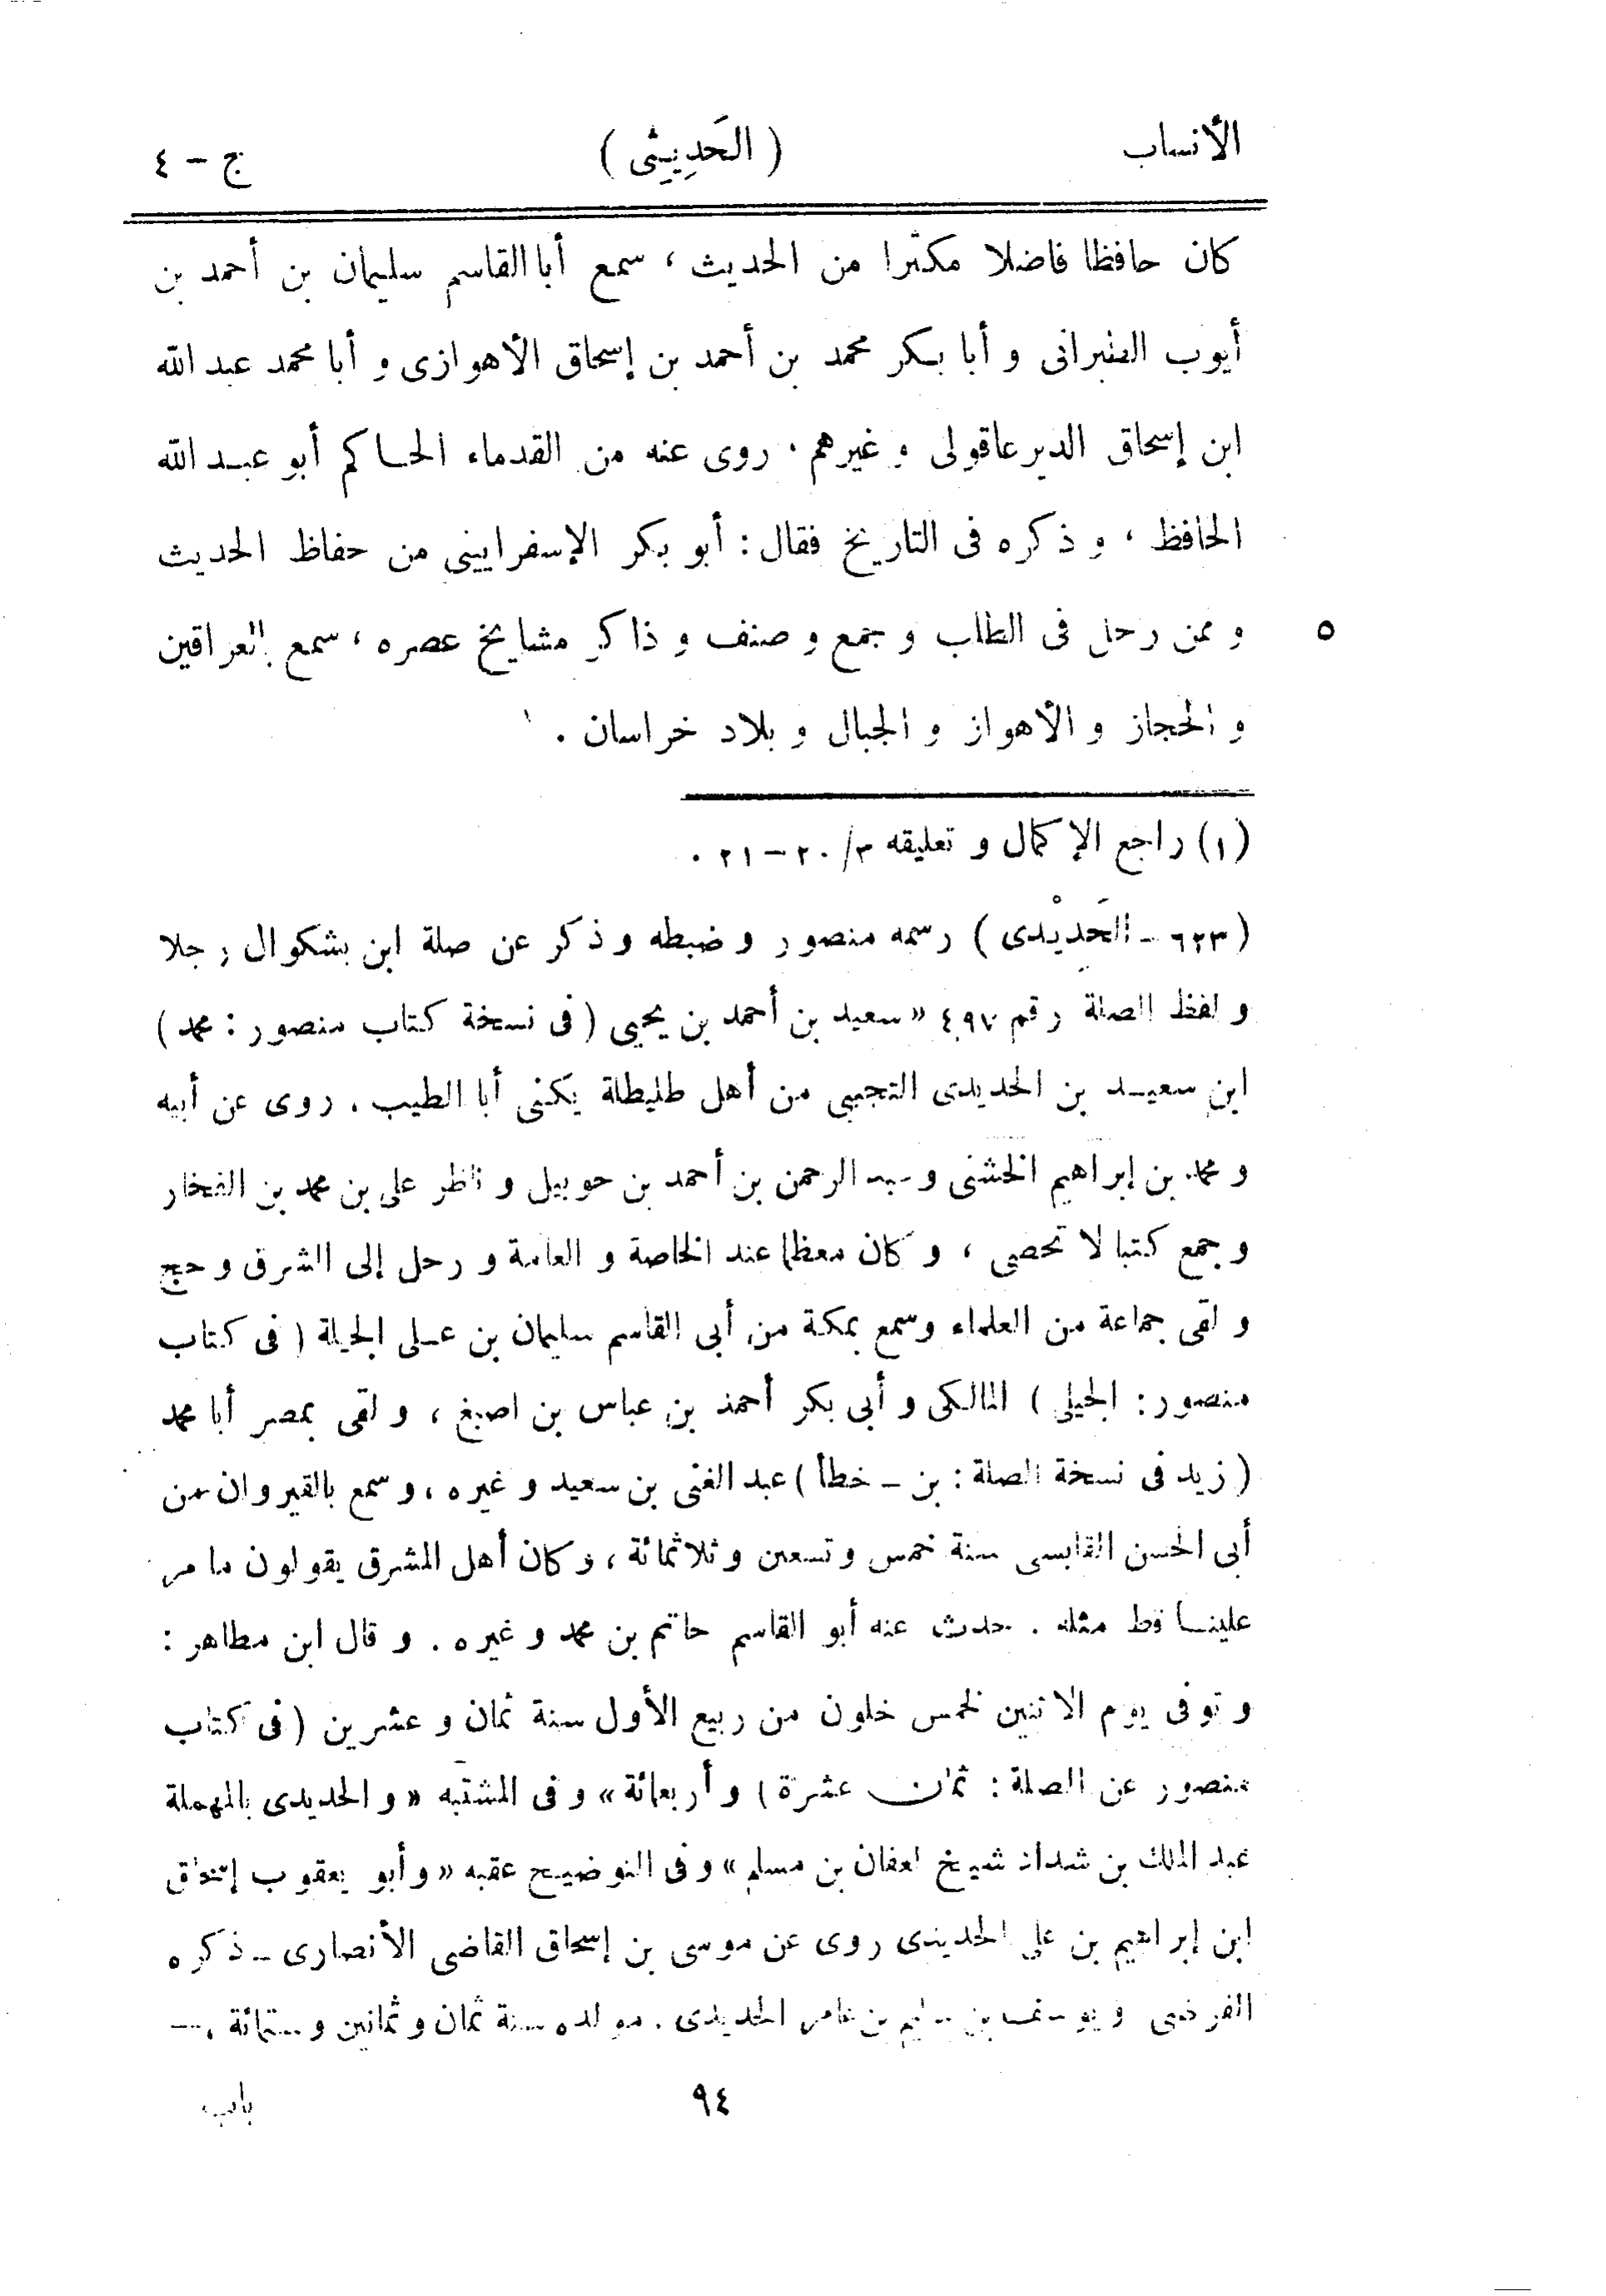 الأنساب ( الحَدِيثى ) ج - ٤
كان حافظا فاضلا مكثرا من الحديث ، سمع أبا القاسم سليمان بن أحمد بن
أيوب الطبرانى و أبا بكر محمد بن أحمد بن إسحاق الأهوازى و أبا محمد عبد الله
ابن إسحاق الديرعاقولى و غيرهم . روى عنه من القدماء الحاكم أبو عبد الله
الحافظ ، و ذكره فى التاريخ فقال : أبو بكر الإسفرايينى من حفاظ الحديث
و ممن رحل فى الطلب و جمع و صنف و ذاكر مشايخ عصره ، سمع بالعراقين
٥
و الحجاز و الأهواز و الجبال و بلاد خراسان . ١
(١) راجع الإكمال و تعليقه ٣/ ٢٠ - ٢١ .
( ٦٢٣ - الحَديْدى ) رسمه منصور و ضبطه و ذكر عن صلة ابن بشكوال رجلا
و لفظ الصلة رقم ٤٩٧ « سعيد بن أحمد بن يحيى ( فى نسخة كتاب منصور : محمد )
ابن سعيد بن الحديدى التجيبى من أهل طليطلة يكنى أبا الطيب . روى عن أبيه
و محمد بن إبراهيم الخشنى و عبد الرحمن بن أحمد بن حوبيل و ناظر على بن محمد بن الفخار
و جمع كتبا لا تحصى ، و كان معظما عند الخاصة و العامة و رحل إلى الشرق و حج
و لقى جماعة من العلماء و سمع بمكة من أبى القاسم سليمان بن على الجيلة ( فى كتاب
منصور : الجيلى ) المالكى و أبى بكر أحمد بن عباس بن اصبغ ، و لقى بمصر أبا محمد
( زيد فى نسخة الصلة : بن - خطأ ) عبد الغنى بن سعيد و غيره ، و سمع بالقيروان من
أبى الحسن القابسى سنة خمس و تسعين و ثلاثمائة ، و كان أهل المشرق يقولون ما مر
علينا قط مثله . حدث عنه أبو القاسم حاتم بن محمد و غيره . و قال ابن مطاهر :
و توفى يوم الاثنين لخمس خلون من ربيع الأول سنة ثمان و عشرين ( فى كتاب
منصور عن الصلة : ثمان عشرة ) و أربعمائة » و فى المشتبه « و الحديدى بالمهملة
عبد الملك بن شداد شيخ لعفان بن مسلم » و فى التوضيح عقبه « و أبو يعقوب إسحاق
ابن إبراهيم بن على الحديدى روى عن موسى بن إسحاق القاضى الأنصارى - ذكره
الفرضى و يوسف بن بن عامر الحديدى . مولده سنة ثمان و ثمانين و ستمائة ، -
٩٤ باب